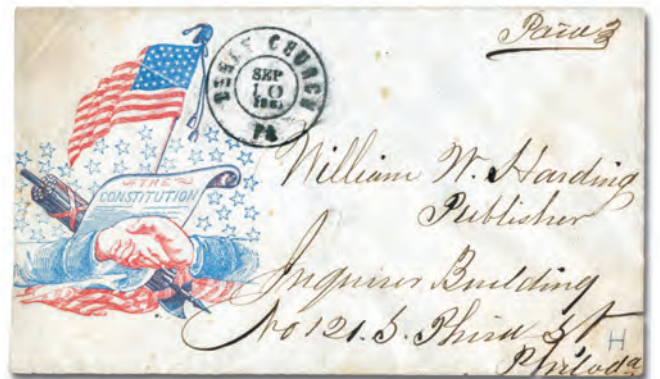 Paid 3
CHURCH
SEP
10
PA
THE
CONSTITUTION
William W. Harding
Publisher
Inquirer Building
No 121. S. Third St
H
Philada